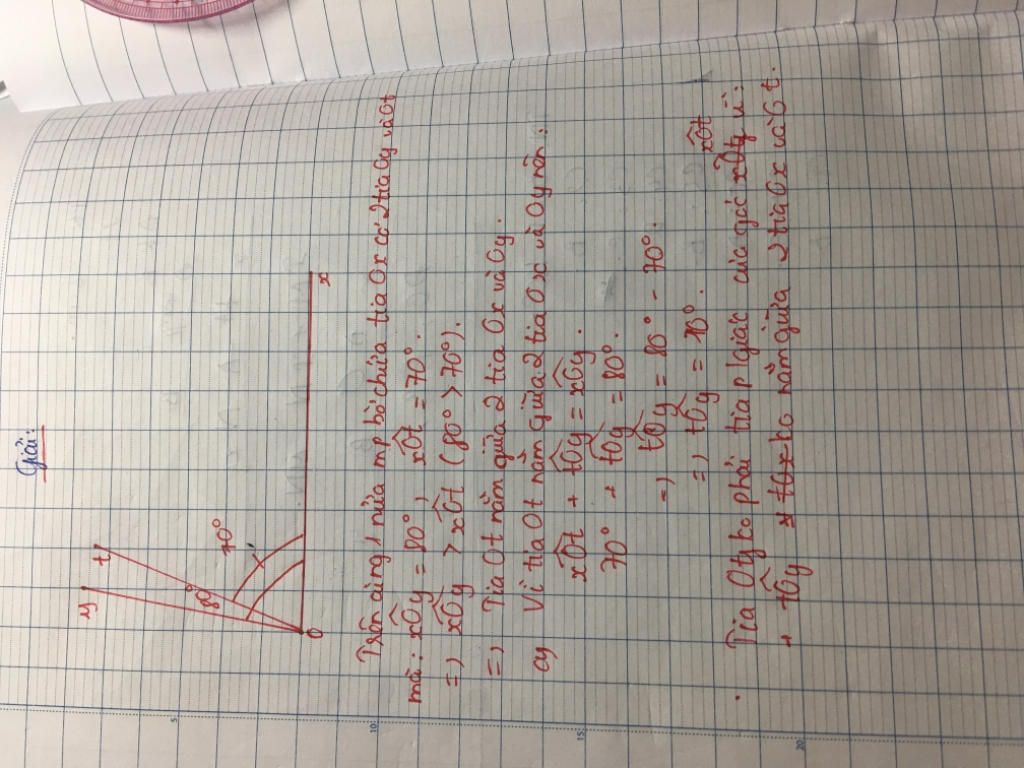 Giải:
y
t
80°
70°
O
x
Trên cùng 1 nửa mp bờ chứa tia Ox có 2 tia Oy và Ot
mà: xÔy = 80°, xÔt = 70°.
=> xÔy > xÔt (80° > 70°).
=> Tia Ot nằm giữa 2 tia Ox và Oy.
Vì tia Ot nằm giữa 2 tia Ox và Oy nên:
xÔt + tÔy = xÔy.
70° + tÔy = 80°.
=> tÔy = 80° - 70°.
=> tÔy = 10°.
xÔt
Tia Oy ko phải tia p/giác của góc vì:
+ Oy ko nằm giữa 2 tia Ox và Ot.
5
10
15
20